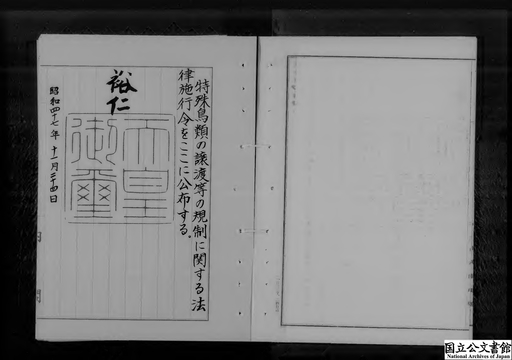 特殊鳥類の譲渡等の規制に関する法
律施行令をここに公布する。
裕仁
天皇
御璽
昭和四十七年十一月二十四日
国立公文書館
National Archives of Japan